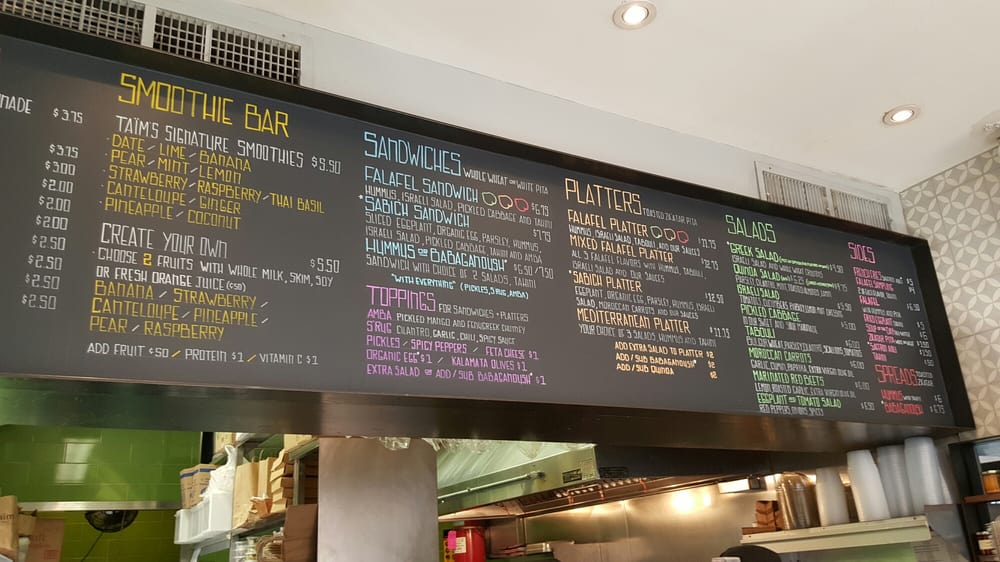 NADE $3.75
$3.75
$3.00
$2.00
$2.00
$2.00
$2.50
$2.50
$2.50
$2.50
SMOOTHIE BAR
TAÏM'S SIGNATURE SMOOTHIES
· DATE / LIME / BANANA
· PEAR / MINT / LEMON
· STRAWBERRY / RASPBERRY / THAI BASIL
· CANTELOUPE / GINGER
· PINEAPPLE / COCONUT
CREATE YOUR OWN $5.50
· CHOOSE 2 FRUITS WITH WHOLE MILK, SKIM, SOY
OR FRESH ORANGE JUICE
BANANA / STRAWBERRY /
CANTELOUPE / PINEAPPLE /
PEAR / RASPBERRY
ADD FRUIT / PROTEIN $1 / VITAMIN C $1
SANDWICHES WHOLE WHEAT OR WHITE PITA
FALAFEL SANDWICH
HUMMUS, ISRAELI SALAD, PICKLED CABBAGE AND TAHINI
*SABICH SANDWICH $7.75
SLICED EGGPLANT, ORGANIC EGG, PARSLEY, HUMMUS,
ISRAELI SALAD, PICKLED CABBAGE, TAHINI AND AMBA
HUMMUS OR BABAGANOUSH*
SANDWICH WITH CHOICE OF 2 SALADS, TAHINI,
"WITH EVERYTHING" (PICKLES, S'RUG, AMBA)
TOPPINGS FOR SANDWICHES + PLATTERS
AMBA PICKLED MANGO AND FENUGREEK CHUTNEY
S'RUG CILANTRO, GARLIC, CHILI, SPICY SAUCE
PICKLES / SPICY PEPPERS / FETA CHEESE $1
ORGANIC EGG* $1 / KALAMATA OLIVES $1
EXTRA SALAD OR ADD/SUB BABAGANOUSH* $1
PLATTERS TOASTED ZA'ATAR PITA
FALAFEL PLATTER
HUMMUS, ISRAELI SALAD, TABOULI, AND OUR SAUCES
MIXED FALAFEL PLATTER
ALL 3 FALAFEL FLAVORS WITH HUMMUS, TABOULI,
ISRAELI SALAD AND OUR SAUCES
*SABICH PLATTER $12.50
EGGPLANT, ORGANIC EGG, PARSLEY, HUMMUS, ISRAELI
SALAD, MOROCCAN CARROTS AND OUR SAUCES
MEDITERRANEAN PLATTER $11.75
YOUR CHOICE OF 3 SALADS, HUMMUS, AND TAHINI
ADD EXTRA SALAD TO PLATTER $2
ADD / SUB BABAGANOUSH* $2
ADD / SUB QUINOA $2
SALADS
*GREEK SALAD
QUINOA SALAD
ISRAELI SALAD
PICKLED CABBAGE
TABOULI
MOROCCAN CARROTS
MARINATED RED BEETS
LEMON, ROASTED GARLIC, EXTRA VIRGIN OLIVE OIL
EGGPLANT AND TOMATO SALAD $6.50
RED PEPPERS, ONIONS, SPICY
SIDES
FRENCH FRIES
FALAFEL SAMPLING
FALAFEL
FRIED EGGPLANT
TAHINI
SPREADS TOASTED ZA'ATAR
HUMMUS $6
*BABAGANOUSH $6.75